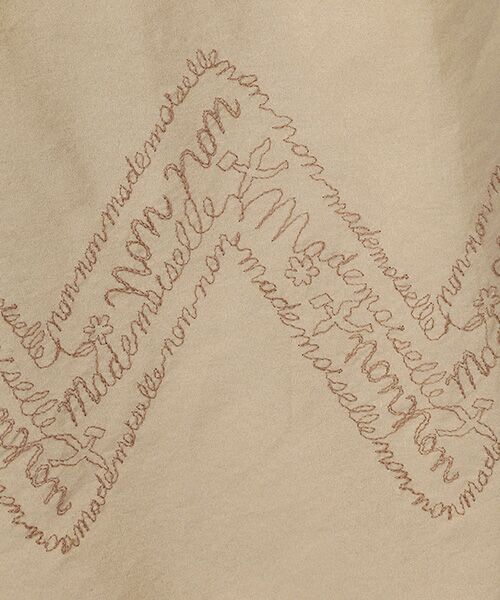 mademoiselle non non mademoiselle
non non mademoiselle non non mademoiselle
non non
Mademoiselle
mademoiselle
non non
mademoiselle non non mademoiselle non non
non non mademoiselle